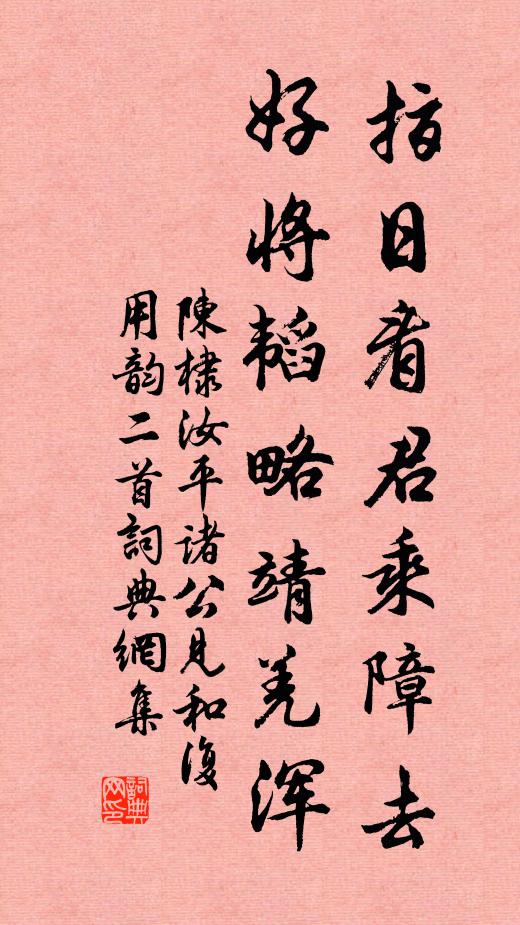 指日看君乘障去
好将韬略靖羌浑
陳棣汝平諸公見和復
用韵二首詞典網集
詞典网印